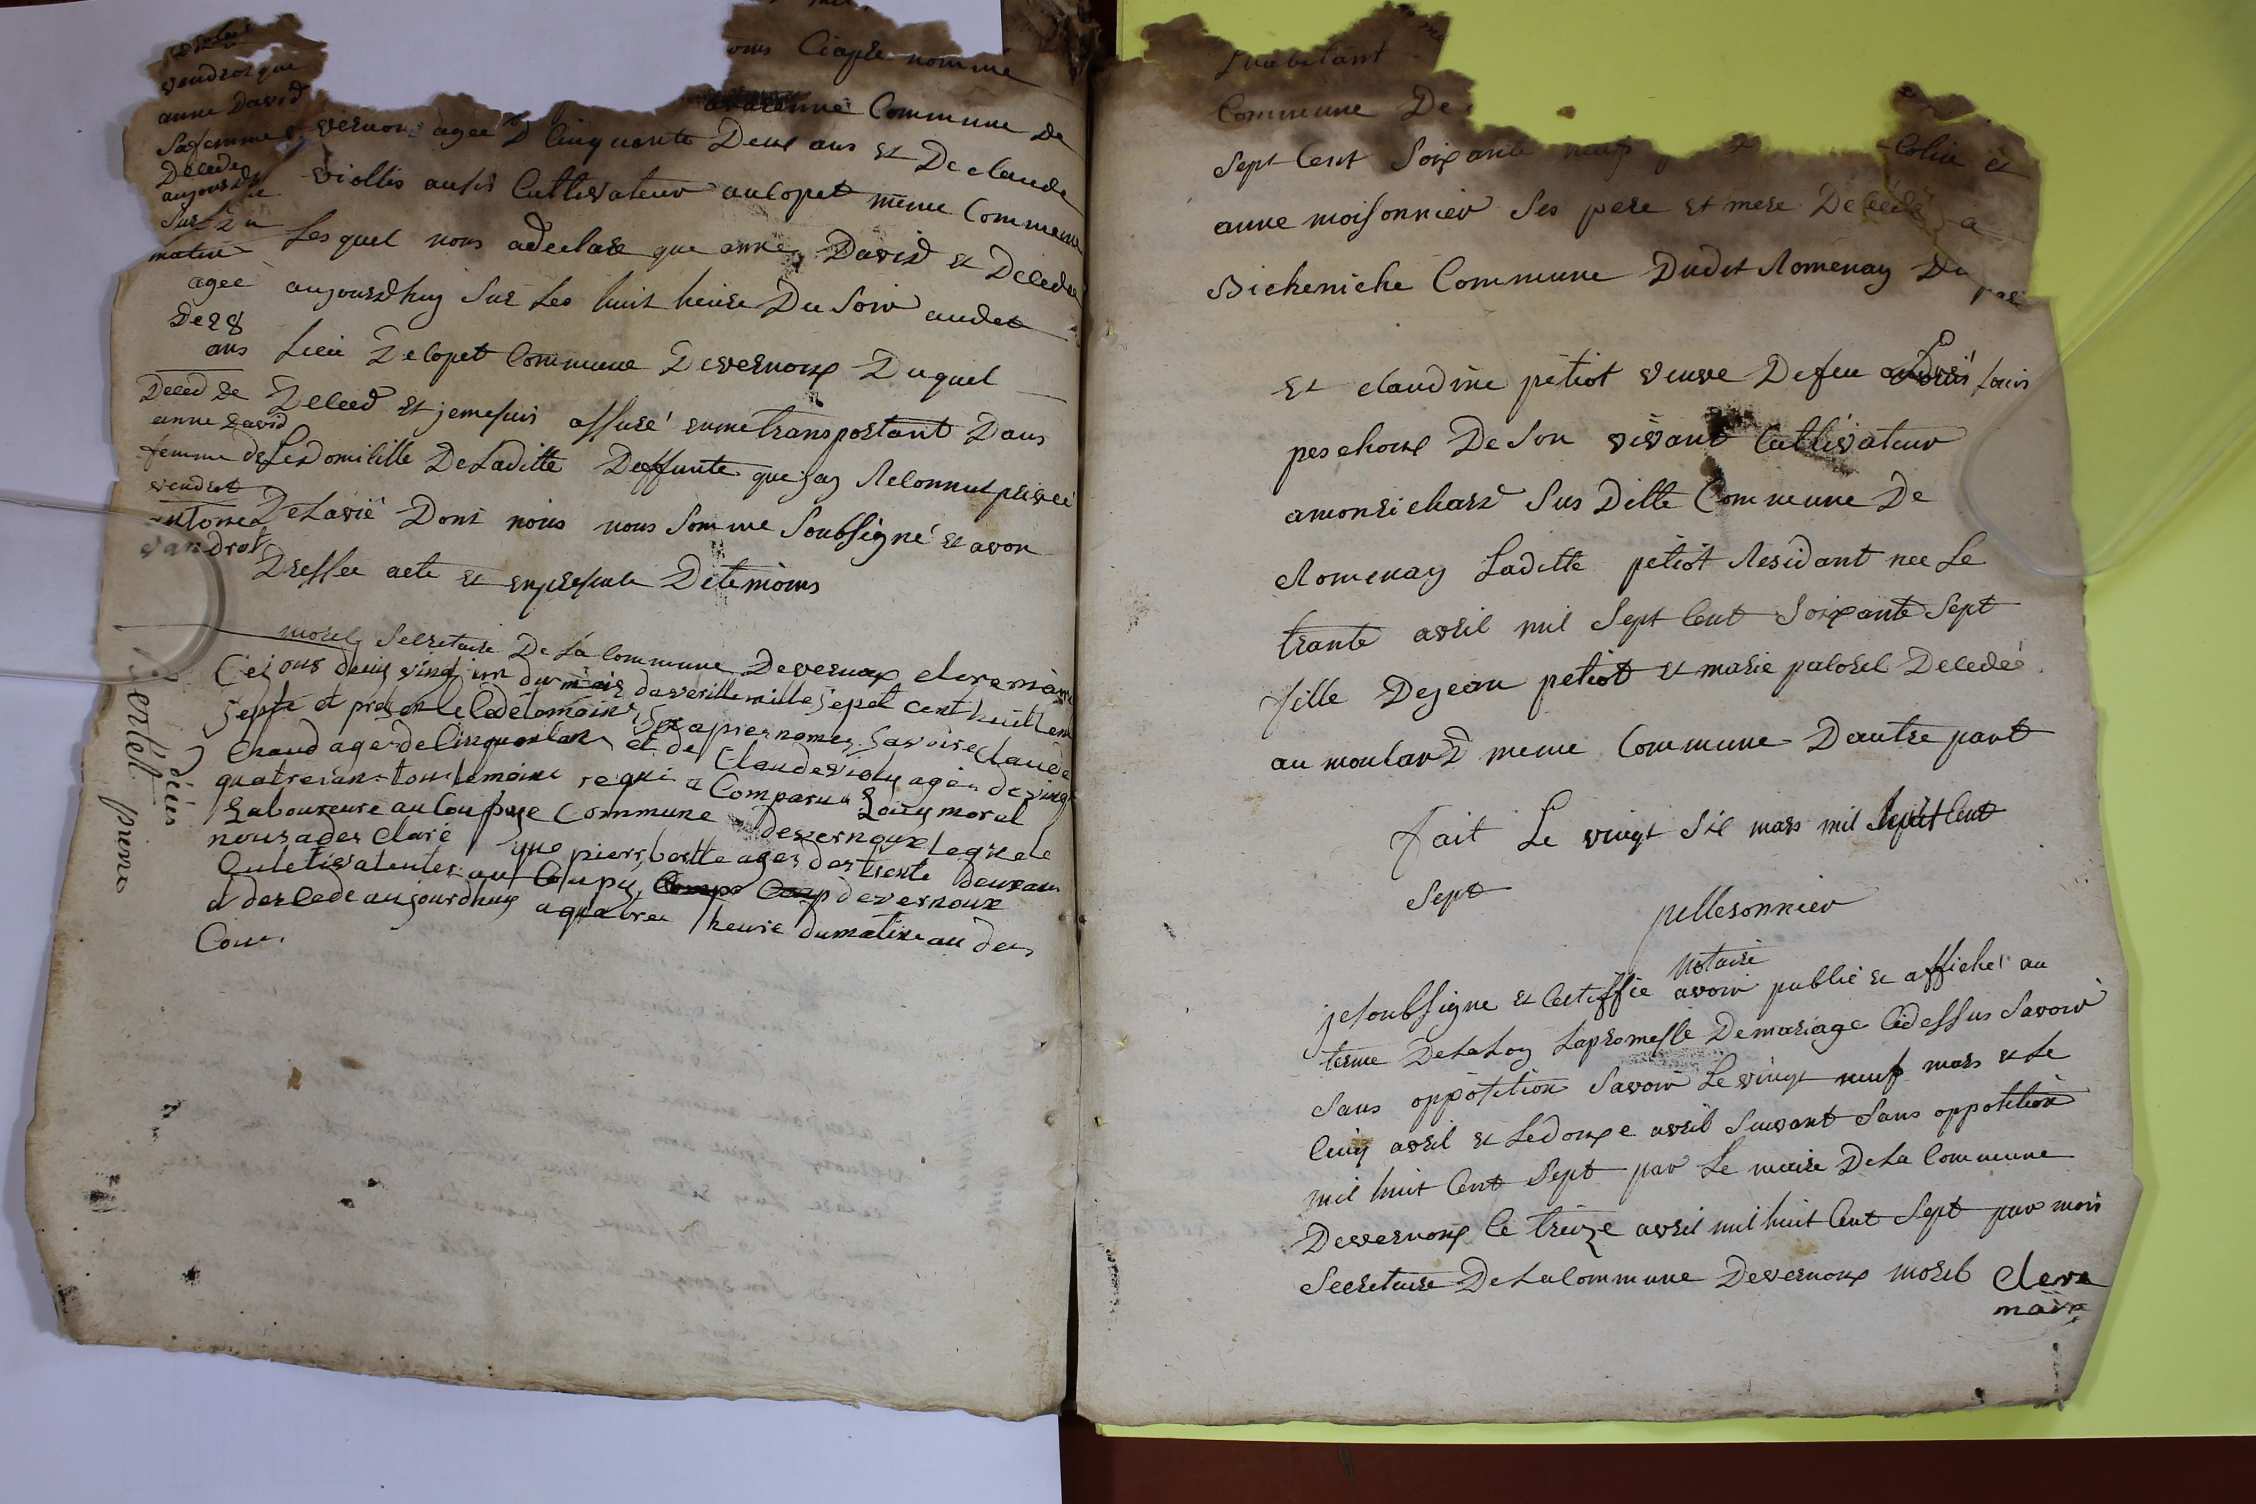 vendrot que
anne David
Sa femme
Decede
aujourdh
Sur
matin
agee
De 28
ans
Deced De
anne David
femme de
vendrot
vandrot
ciapre nommé
Commune De
agee D Cinquante Deux ans et De claude
viollis aussi Cultivateur au Copet meme Commune
Les quel nous a declare que anne David et Decedee
aujourdhuy Sur Les huit heure Du Soir audet
Lieu De Copet Commune De vernoux Duquel
Deced et je me suis assuré en me transportant Dans
Les Domicille De Laditte Deffunte que jay Reconnut privée
De La vie Dont nous nous Somme Soubsigné et avon
Dressee acte et en presente De temoins
morel Secretaire De La Commune De vernoux clere maire
Deces
Bertell pierre
Ce jour duix vingt un du mois daverille mille sept cent huit cent
septe et presen le
Chaud age de Cinquantan et de Claude violy agé de vingt
quatre ans tous temoins requi a Comparu Louiy morel
Laboureure au Coupuye Commune devernoux lequele
nous a des claré que pierr bertle ages des trente deux ans
Culetivateulere au Coupuy devernoux
a des cede aujourdhuy a quatree heure du matine au des
Com.
Commune De
Sept Cent Soixante neuf Colin et
anne moissonnier Ses pere et mere Decedé a
Bicheniche Commune Dudet Romenay Du
Et claudine petiot veuve De feu Louis
peschoux De Son vivant Cultivateur
a monrichard Sus Ditte Commune De
Romenay Laditte petiot Residant nee Le
trante avril mil Sept Cent Soixante Sept
fille De jean petiot et marie palorel Decedés
au moulard meme Commune D'autre part
fait Le vingt Six mars mil huit Cent
Sept
pellesonnier
Notaire
je Soubsigne et Certiffie avoir publié et affiché au
terme De La Loy La promesse De mariage Cidessus Savoir
Sans oppotition Savoir Le vingt neuf mars et Le
Cinq avril et Le douxe avril Suivant Sans oppotition
mil huit Cent Sept par Le maire De La Commune
De vernoux Ce treize avril mil huit Cent Sept par mois
Secretaire De La Commune De vernoux morel Clere
maire